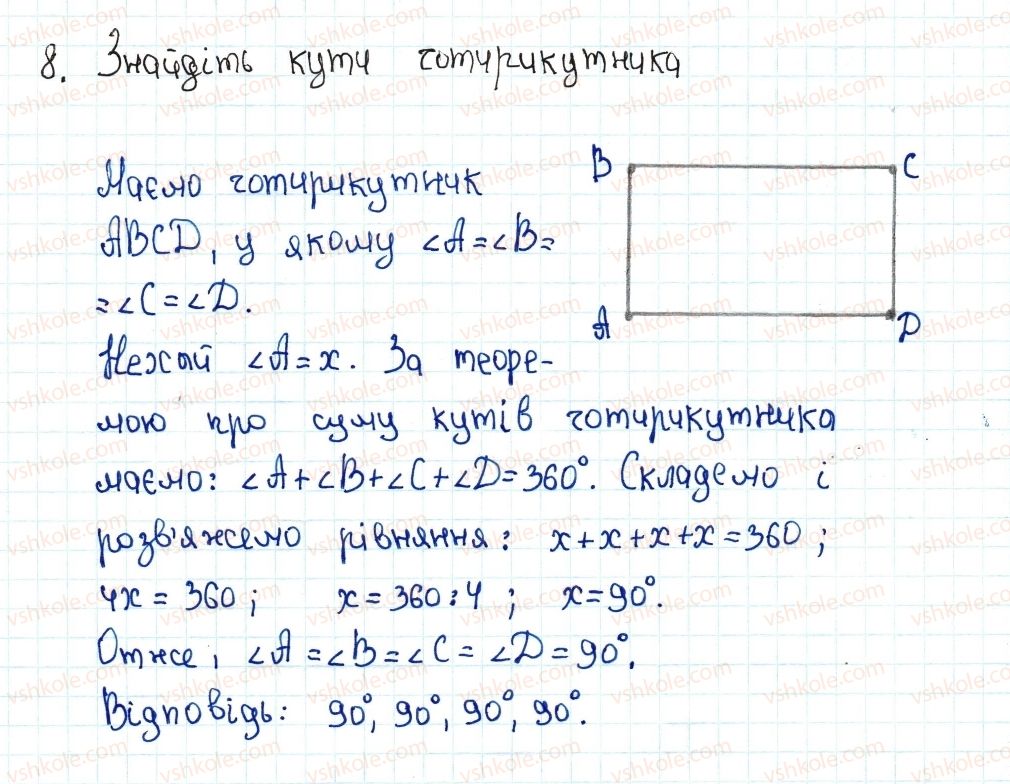 8. Знайдіть кути чотирикутника
Маємо чотирикутник
ABCD, у якому ∠A=∠B=
=∠C=∠D.
Нехай ∠A=x. За теоре-
мою про суму кутів чотирикутника
маємо: ∠A+∠B+∠C+∠D=360°. Складемо і
розв'яжемо рівняння: x+x+x+x=360;
4x = 360; x=360:4; x=90°.
Отже, ∠A=∠B=∠C=∠D=90°.
Відповідь: 90°, 90°, 90°, 90°.
B C
A D
vshkole.com